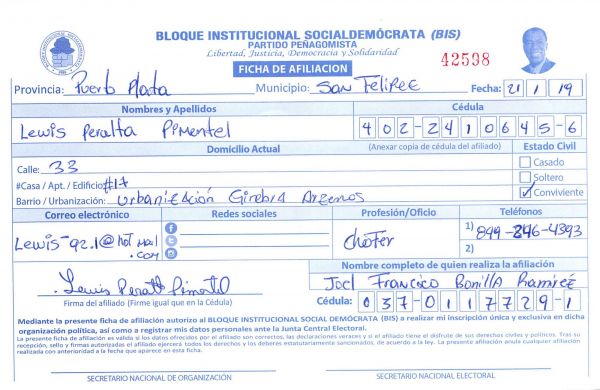 BLOQUE INSTITUCIONAL SOCIALDEMÓCRATA (BIS)
PARTIDO PEÑAGOMISTA
Libertad, Justicia, Democracia y Solidaridad
42598
FICHA DE AFILIACION
Provincia: Puerto Plata Municipio: San Felipee Fecha: 21 1 19
Nombres y Apellidos Cédula
Lewis Peralta Pimentel 402-2410645-6
Domicilio Actual (Anexar copia de cédula del afiliado) Estado Civil
Calle: 33 Casado
#Casa / Apt. / Edificio #17 Soltero
Barrio / Urbanización: Urbanización Ginebra Arzenos Conviviente
Correo electrónico Redes sociales Profesión/Oficio Teléfonos
Lewis-92.1@hotmail.com Chofer 1) 849-846-4393
2)
Lewis Peralt Pimentel
Firma del afiliado (Firme igual que en la Cédula)
Nombre completo de quien realiza la afiliación
Joel Francisco Bonilla Ramirez
Cédula: 037-0117729-1
Mediante la presente ficha de afiliación autorizo al BLOQUE INSTITUCIONAL SOCIAL DEMÓCRATA (BIS) a realizar mi inscripción única y exclusiva en dicha
organización política, así como a registrar mis datos personales ante la Junta Central Electoral.
La presente ficha de afiliación es válida si los datos ofrecidos por el afiliado son correctos, las declaraciones veraces y si el afiliado tiene el disfrute de sus derechos civiles y políticos. Tras su
recepción, sello y firmas autorizadas el afiliado ejercerá todos los derechos y los deberes estatutariamente sancionados, de acuerdo a la ley. La presente afiliación anula cualquier afiliación
realizada con anterioridad a la fecha que aparece en esta ficha.
SECRETARIO NACIONAL DE ORGANIZACIÓN SECRETARIO NACIONAL ELECTORAL